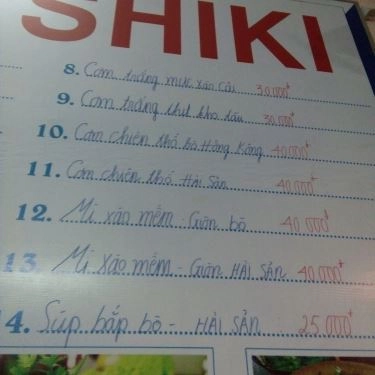 SHIKI
8. Cơm trắng mực xào cải 30.000đ
9. Cơm trắng thịt kho tàu 30.000đ
10. Cơm chiên thố bò Hồng Kông 40.000đ
11. Cơm chiên thố Hải Sản 40.000đ
12. Mì xào mềm - Giòn bò 40.000đ
13. Mì xào mềm - Giòn HẢI SẢN 40.000đ
4. Súp bắp bò - HẢI SẢN 25.000đ